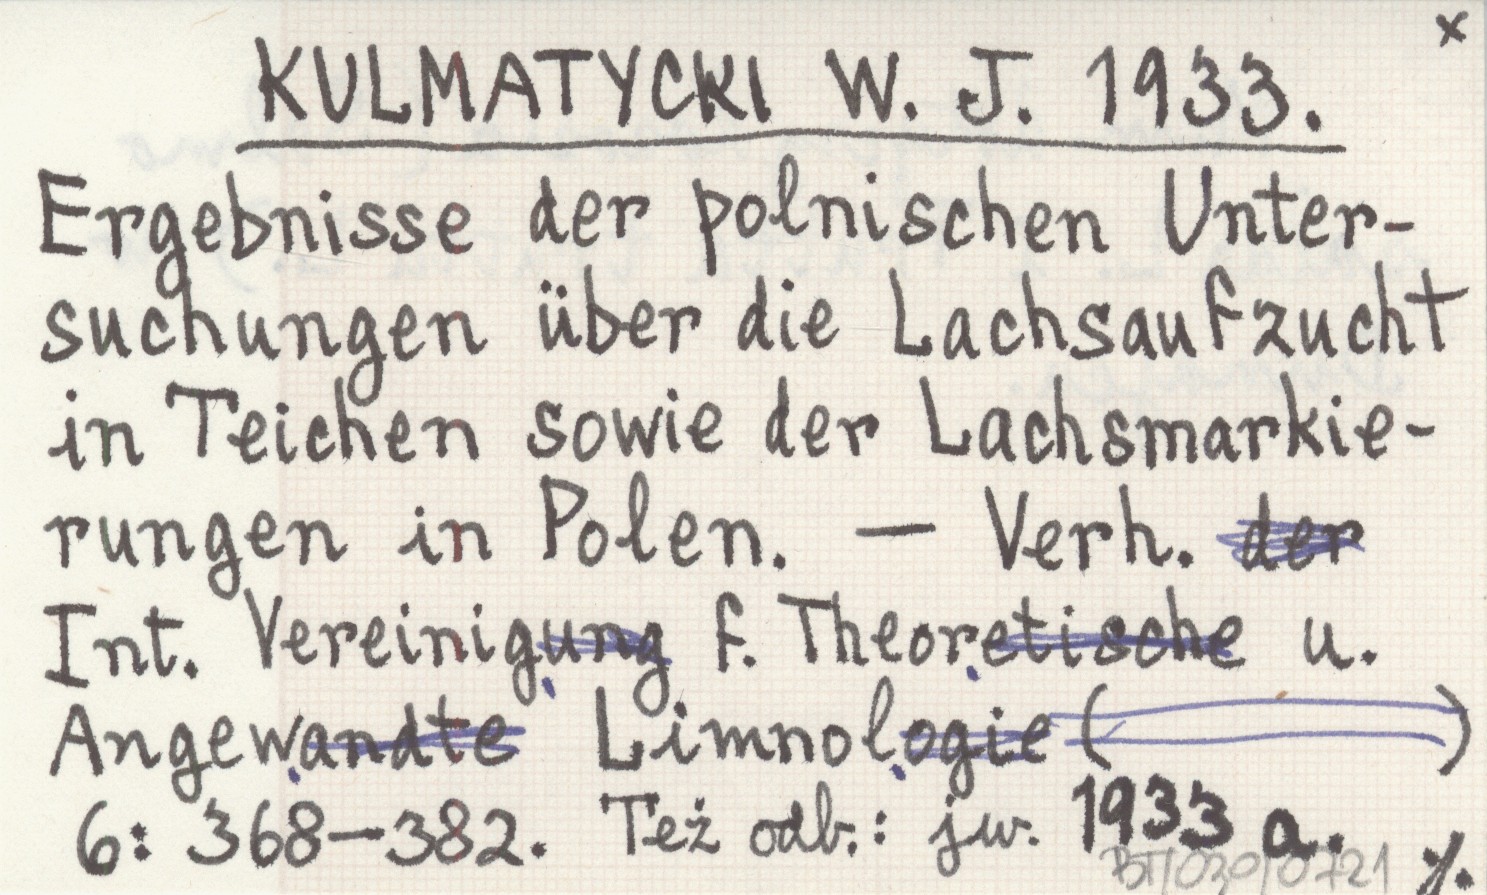 x
KULMATYCKI W. J. 1933.
Ergebnisse der polnischen Unter-
suchungen über die Lachsaufzucht
in Teichen sowie der Lachsmarkie-
rungen in Polen. — Verh. der
Int. Vereinigung f. Theoretische u.
Angewandte Limnologie ( )
6: 368—382. Też odb.: jw. 1933 a.
BT/030/0721